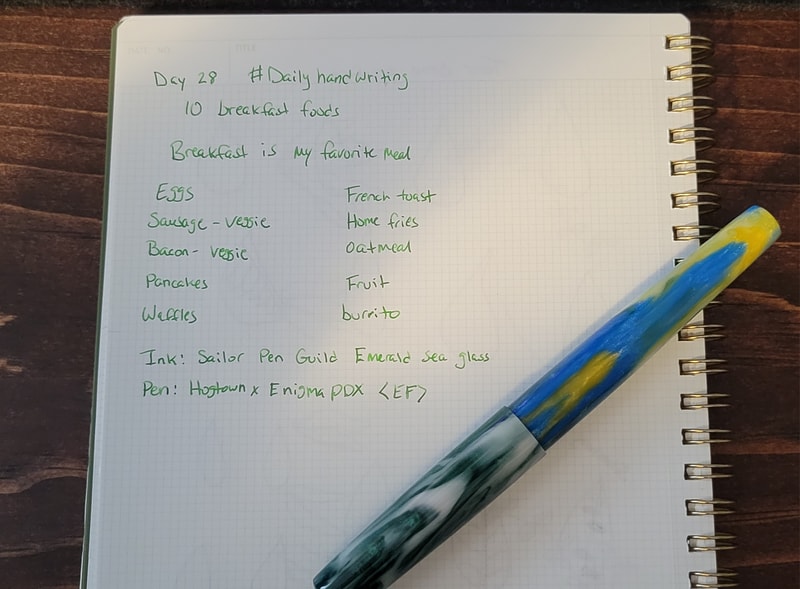 Day 28 #Dailyhandwriting
10 breakfast foods
Breakfast is my favorite meal
Eggs
Sausage - veggie
Bacon - veggie
Pancakes
Waffles
French toast
Home fries
Oatmeal
Fruit
burrito
Ink: Sailor Pen Guild Emerald Sea glass
Pen: Hogtown x Enigma PDX <EF>